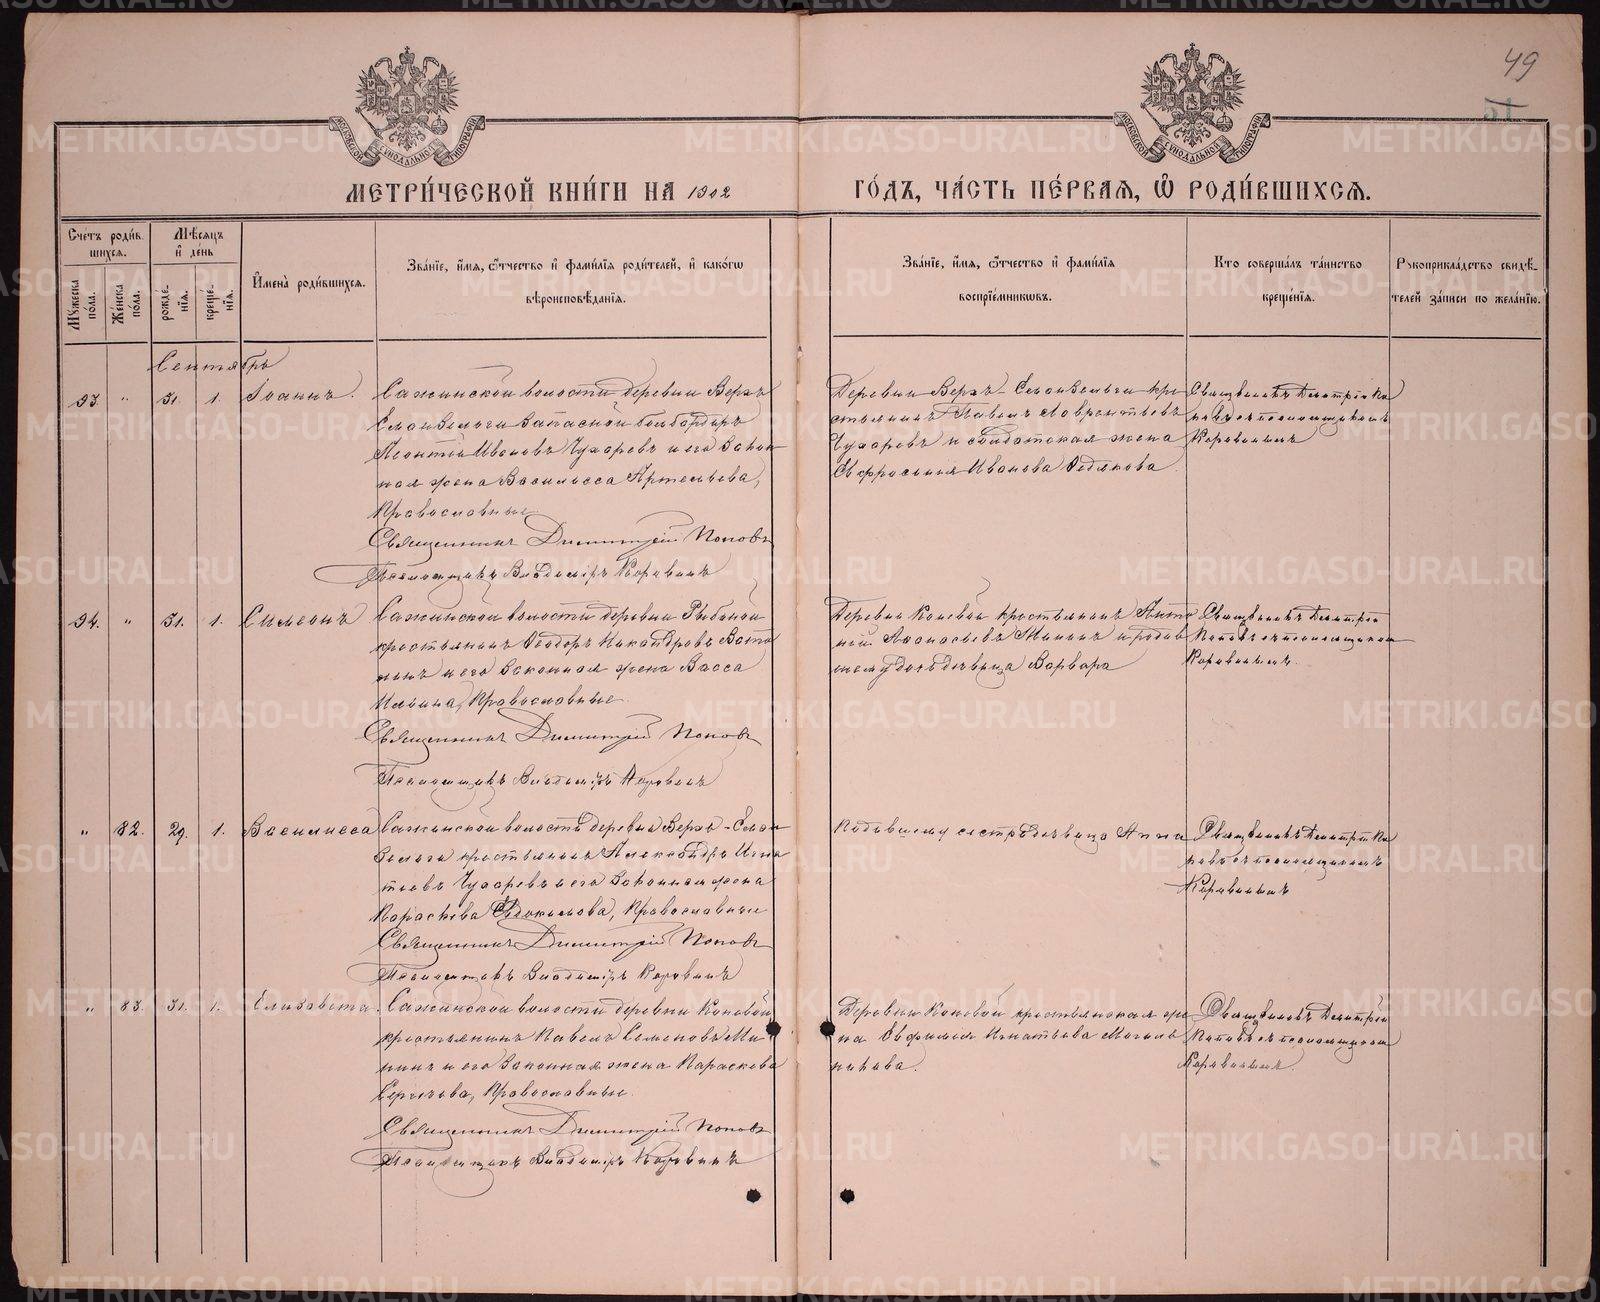 49
51
МОСКОВСКОЙ СѴНОДАЛЬНОЙ ТИПОГРАФІИ
МОСКОВСКОЙ СѴНОДАЛЬНОЙ ТИПОГРАФІИ
МЕТРИ́ЧЕСКОЙ КНИ́ГИ НА 1902
ГО́ДЪ, ЧА́СТЬ ПЕ́РВАЯ, Ѽ РОДИ́ВШИХСЯ.
Сче́тъ роди́в-
шихся.
Му́жеска по́ла.
Же́нска по́ла.
Мѣ́сяцъ
и҆ де́нь
рожде́-
нїѧ.
креще́-
нїѧ.
И҆мена̀ роди́вшихся.
Зва́нїе, и҆́мя, ѻ҆́тчество и҆ фами́лїя роди́телей, и҆ како́гѡ
вѣроисповѣ́данїя.
Зва́нїе, и҆́мя, ѻ҆́тчество и҆ фами́лїя
воспрїе́мникѡвъ.
Кто̀ соверша́лъ та́инство
креще́нїя.
Рꙋкоприкла́дство свидѣ́-
телей за́писи по жела́нїю.
Сентябрь
93 " 31. 1. Іоаннъ.
Сажинской волости деревни Верхъ
запасной бомбардиръ
Леонтій Ивановъ Чухаревъ и его закон-
ная жена Василисса Артемьева,
Православные.
Священникъ Димитрій Поповъ
Псаломщикъ Владиміръ Коровинъ
Деревни Верхъ- кре-
стьянинъ Павелъ Лаврентьевъ
Чухаревъ и солдатская жена
Евфросинія Иванова
Священникъ Димитрій По-
повъ съ псаломщикомъ
Коровинымъ
94. " 31. 1. Симеонъ
Сажинской волости деревни
крестьянинъ Ѳеодоръ Никандровъ
и его законная жена Васса
Ильина, Православные.
Священникъ Димитрій Поповъ
Псаломщикъ Владиміръ Коровинъ
Деревни Коневой крестьянинъ Анто-
ній Аѳанасьевъ Мининъ и родив-
шему дочь дѣвица Варвара
Священникъ Димитрій
Поповъ съ псаломщикомъ
Коровинымъ.
" 82. 29. 1. Василисса
Сажинской волости деревни Верхъ-
крестьянинъ Александръ Игна-
тьевъ Чухаревъ и его законная жена
Параскева Евдокимова, Православные
Священникъ Димитрій Поповъ
Псаломщикъ Владиміръ Коровинъ
Родившему сестра дѣвица Анна
Священникъ Димитрій По-
повъ съ псаломщикомъ
Коровинымъ
" 83. 31. 1. Елизавета.
Сажинской волости деревни Коневой
крестьянинъ Павелъ Семеновъ Ми-
нинъ и его законная жена Параскева
Сергѣева, Православные.
Священникъ Димитрій Поповъ
Псаломщикъ Владиміръ Коровинъ
Деревни Коневой крестьянская же-
на Евфимія Игнатьева
Священникъ Димитрій
Поповъ съ псаломщикомъ
Коровинымъ.
METRIKI.GASO-URAL.RU